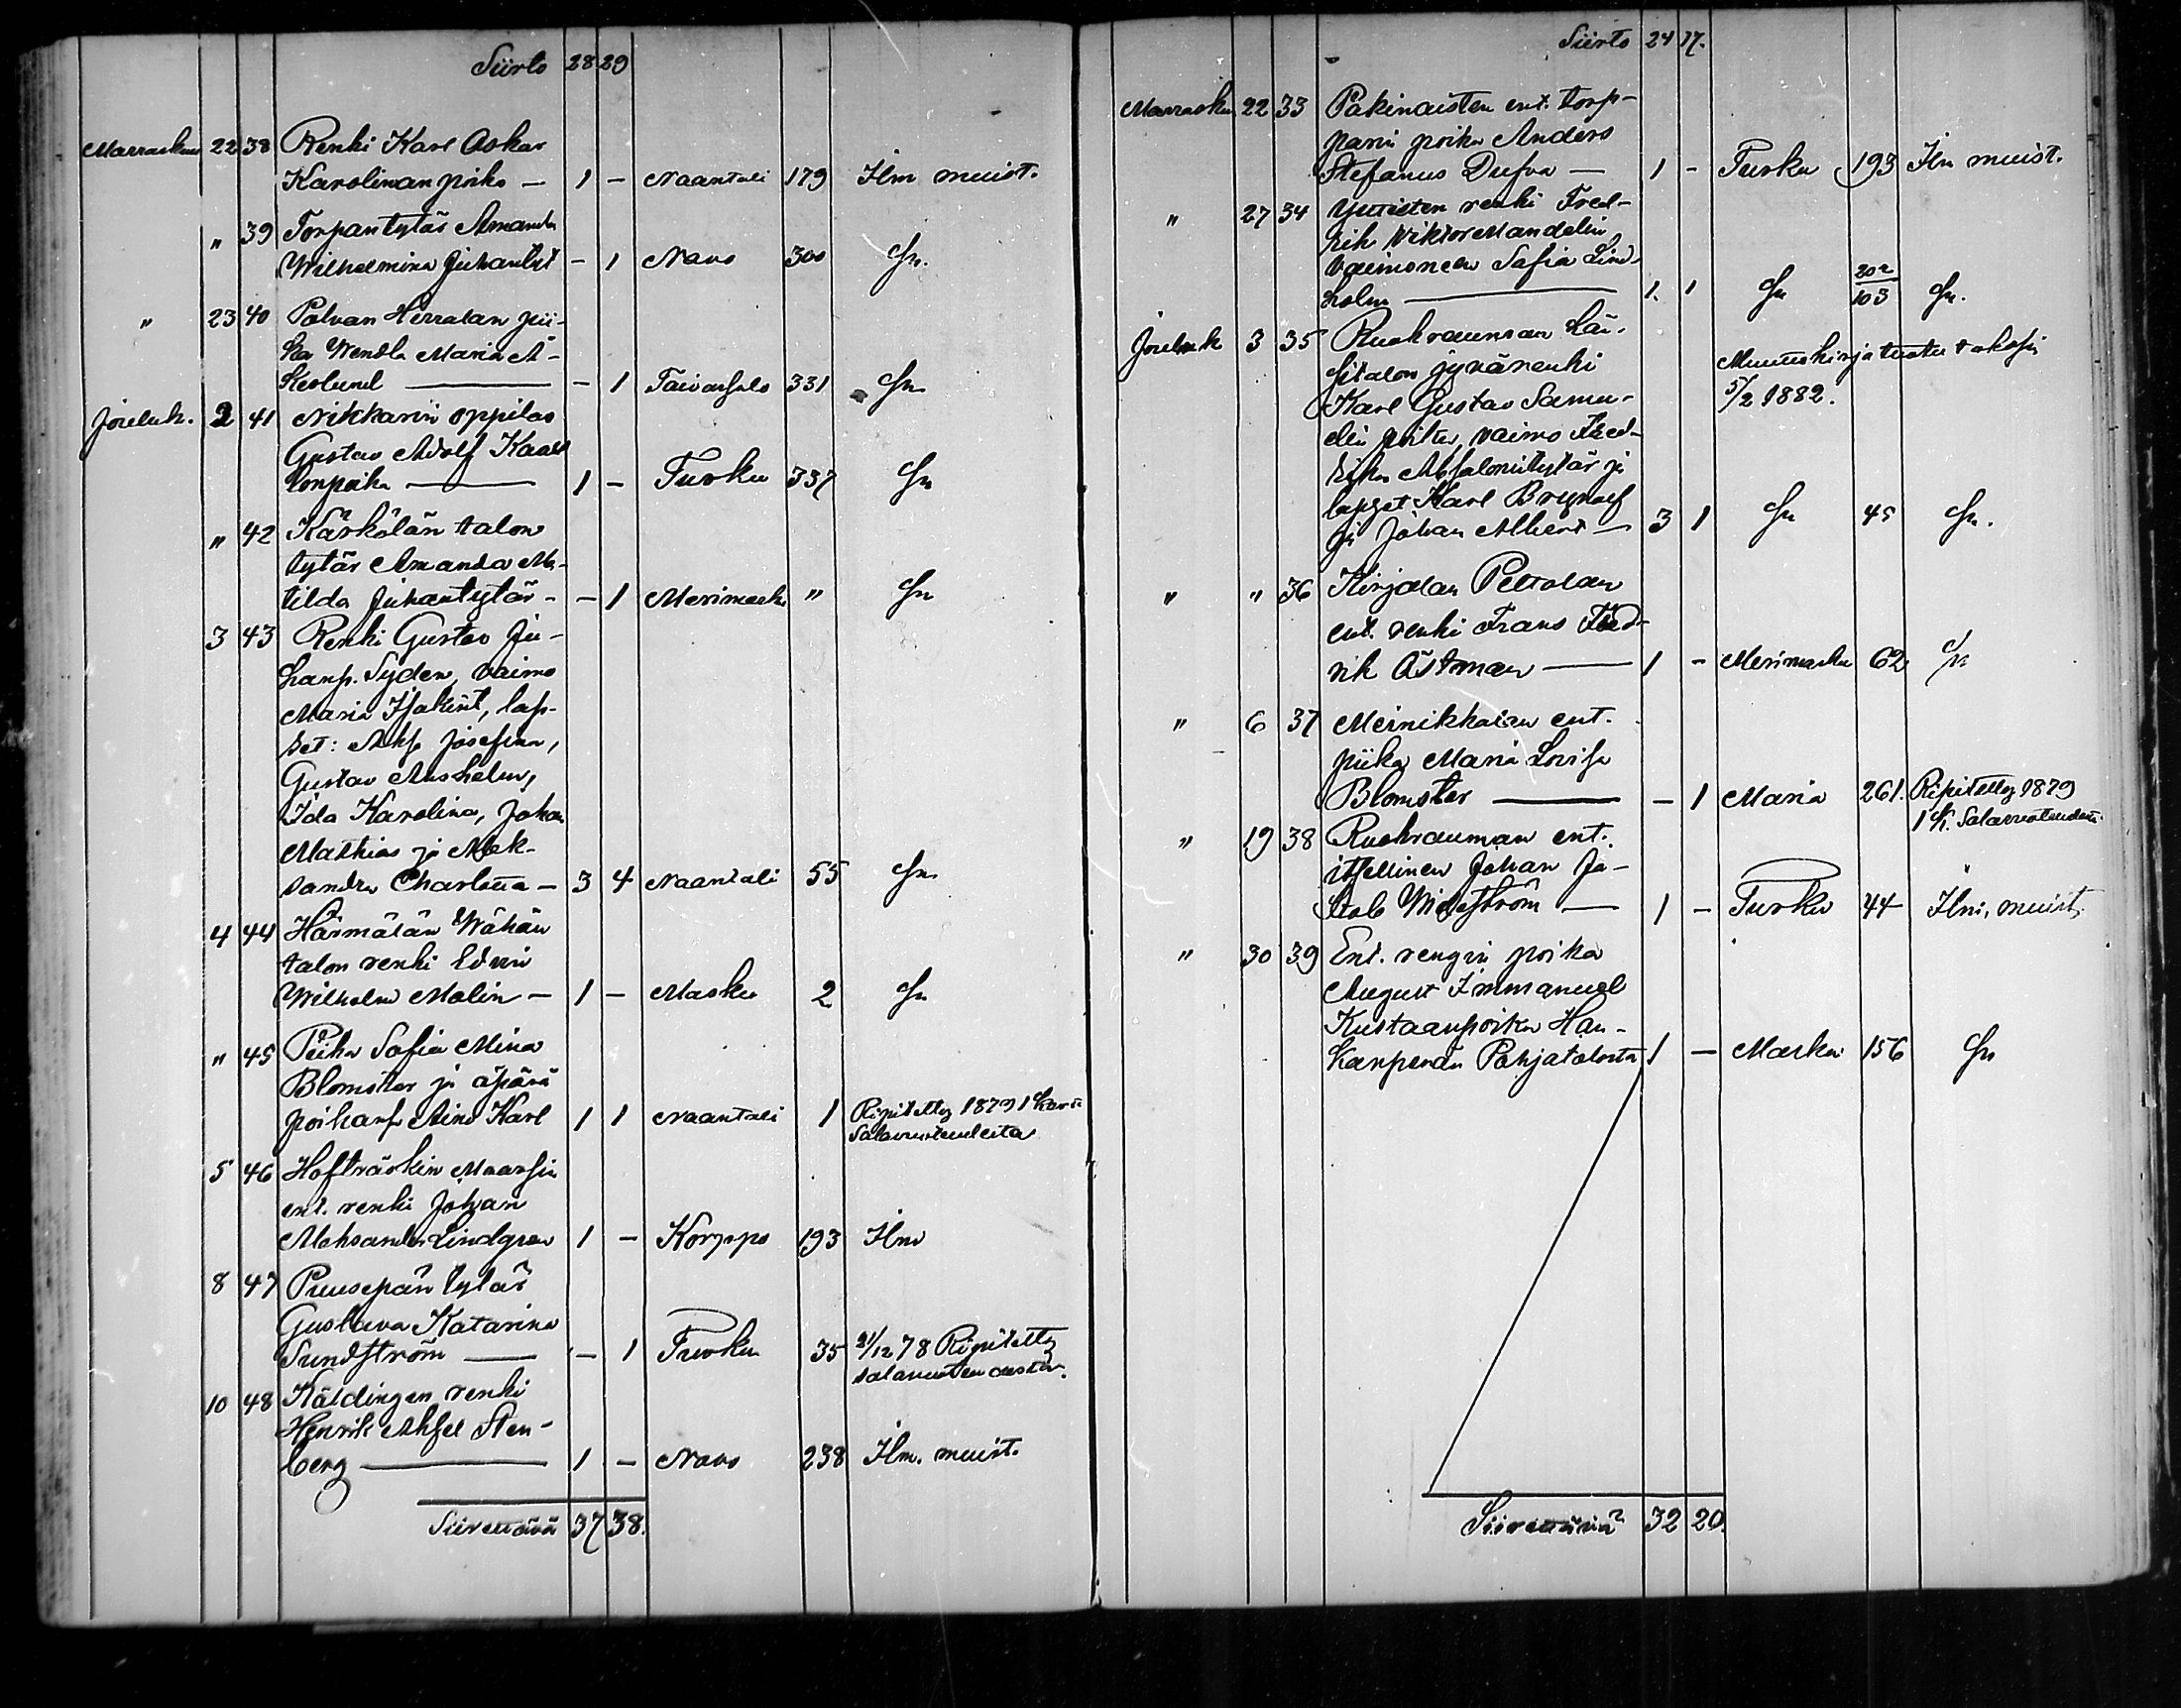 Siirto 28 29
Marraskuu 22 38 Renki Karl Oskar
Karolinan poika — 1 - Naantali 179 Ilm muist.
" 39 Torpantytär Amanda
Wilhelmina Juhantyt - 1 Navo 300 Sn.
" 23 40 Polvan Herralan pii-
ka Wendla Maria A-
kerlund — - 1 Taivassalo 331 Sn
Jouluk. 2 41 Nikkarin oppilas
Gustav Adolf Kaar
lonpoika — 1 - Turku 337 Sn
" 42 Kärkölän talon
tytär Amanda Ma-
tilda Juhantytär - - 1 Merimasku " Sn
3 43 Renki Gustav Ju-
hanp. Syden, vaimo
Maria Isakint, lap-
set: Josefina,
Gustav Anshelm,
Ida Karolina, Johan
Mathias ja Alek-
sandra Charlotta — 3 4 Naantali 55 Sn
4 44 Härmälän Wähän
talon renki Edvin
Wilhelm Malin — 1 - Masku 2 Sn
" 45 Piika Sofia Mina
Blomster ja äpärä
poikans Aino Karl 1 1 Naantali 1 Ripitetty 1879 1 kerr
Salavuoteudesta
5 46 Hofträskin Maarsin
ent. renki Johan
Aleksander Lindgren 1 - Korppo 193 Ilm
8 47 Puusepän tytär
Gustava Katarina
Sundström — - 1 Turku 35 21/12 78 Ripitetty
salavuoteudesta.
10 48 Käldingen renki
Henrik Aksel Sten-
berg — 1 - Navo 238 Ilm. muist.
Siirettävä 37 38.
Siirto 24 17.
Marrasku 22 33 Pakinaisten ent. torp-
parin poika Anders
Stefanus Dufva — 1 - Turku 193 Ilm muist.
" 27 34 renki Fred-
rik Viktor Mandelin
vaimoneen Sofia Lind-
holm — 1. 1 Sn 202/103 Sn.
Jouluk 3 35 Ruokrauman Län-
sitalon jyvärenki
Muuttokirja tuotu takasin
Karl Gustav Samu-
5/2 1882.
elin poika, vaimo Fred-
rika Absalomintytär ja
lapset Karl Brynolf
ja Johan Albert — 3 1 Sn 45 Sn.
" " 36 Kirjalan Peltolan
ent. renki Frans Fred-
rik Östman — 1 - Merimasku 62 Sn
" 6 37 Meinikkalan ent.
piika Maria Lovisa
Blomster — - 1 Maria 261. Ripitetty 1879
1 k. Salavuoteudesta.
" 19 38 Ruokrauman ent.
itsellinen Johan Ja-
kob Widström — 1 - Turku 44 Ilm, muist.
" 30 39 Ent. rengin poika
August Immanuel
Kustaanpoika Han-
kanperän Pohjatalosta 1 — Masku 156 Sn
Siirettävä 32 20.